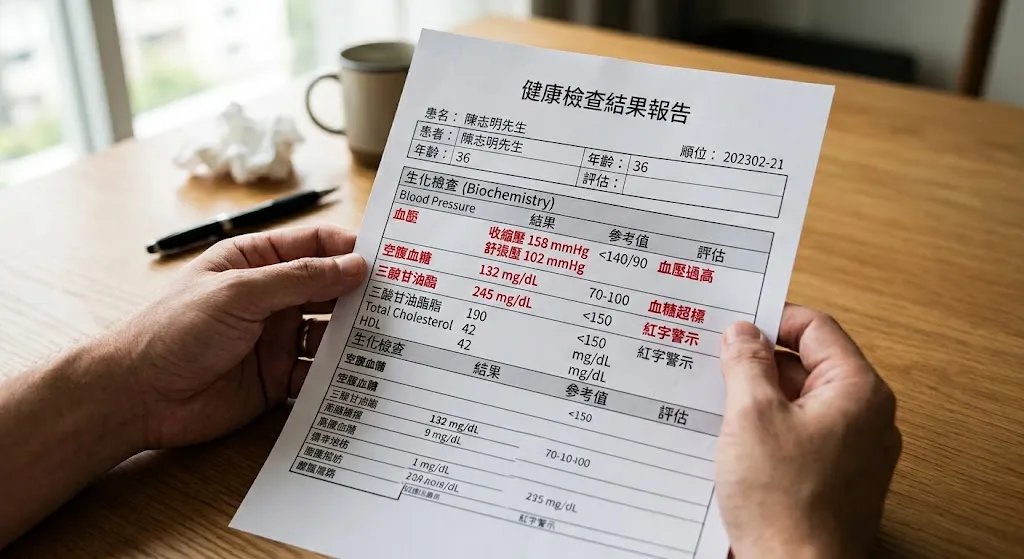 健康檢查結果報告
患名： 陳志明先生
順位： 202302-21
患者： 陳志明先生 年齡： 36
年齡： 36 評估：
生化檢查 (Biochemistry)
Blood Pressure 結果 參考值 評估
血壓 收縮壓 158 mmHg <140/90 血壓過高
舒張壓 102 mmHg
空腹血糖 132 mg/dL 70-100 血糖超標
三酸甘油酯 245 mg/dL <150 紅字警示
三酸甘油脂脂 190 <150 紅字警示
Total Cholesterol 42 mg/dL
HDL 42 mg/dL
生化檢查 結果 參考值 評估
空腹血
空腹血糖 <150
三酸甘油
132 mg/dL 70-10400
9 mg/dL
1 mg/dL
235 mg/dL
紅字警示